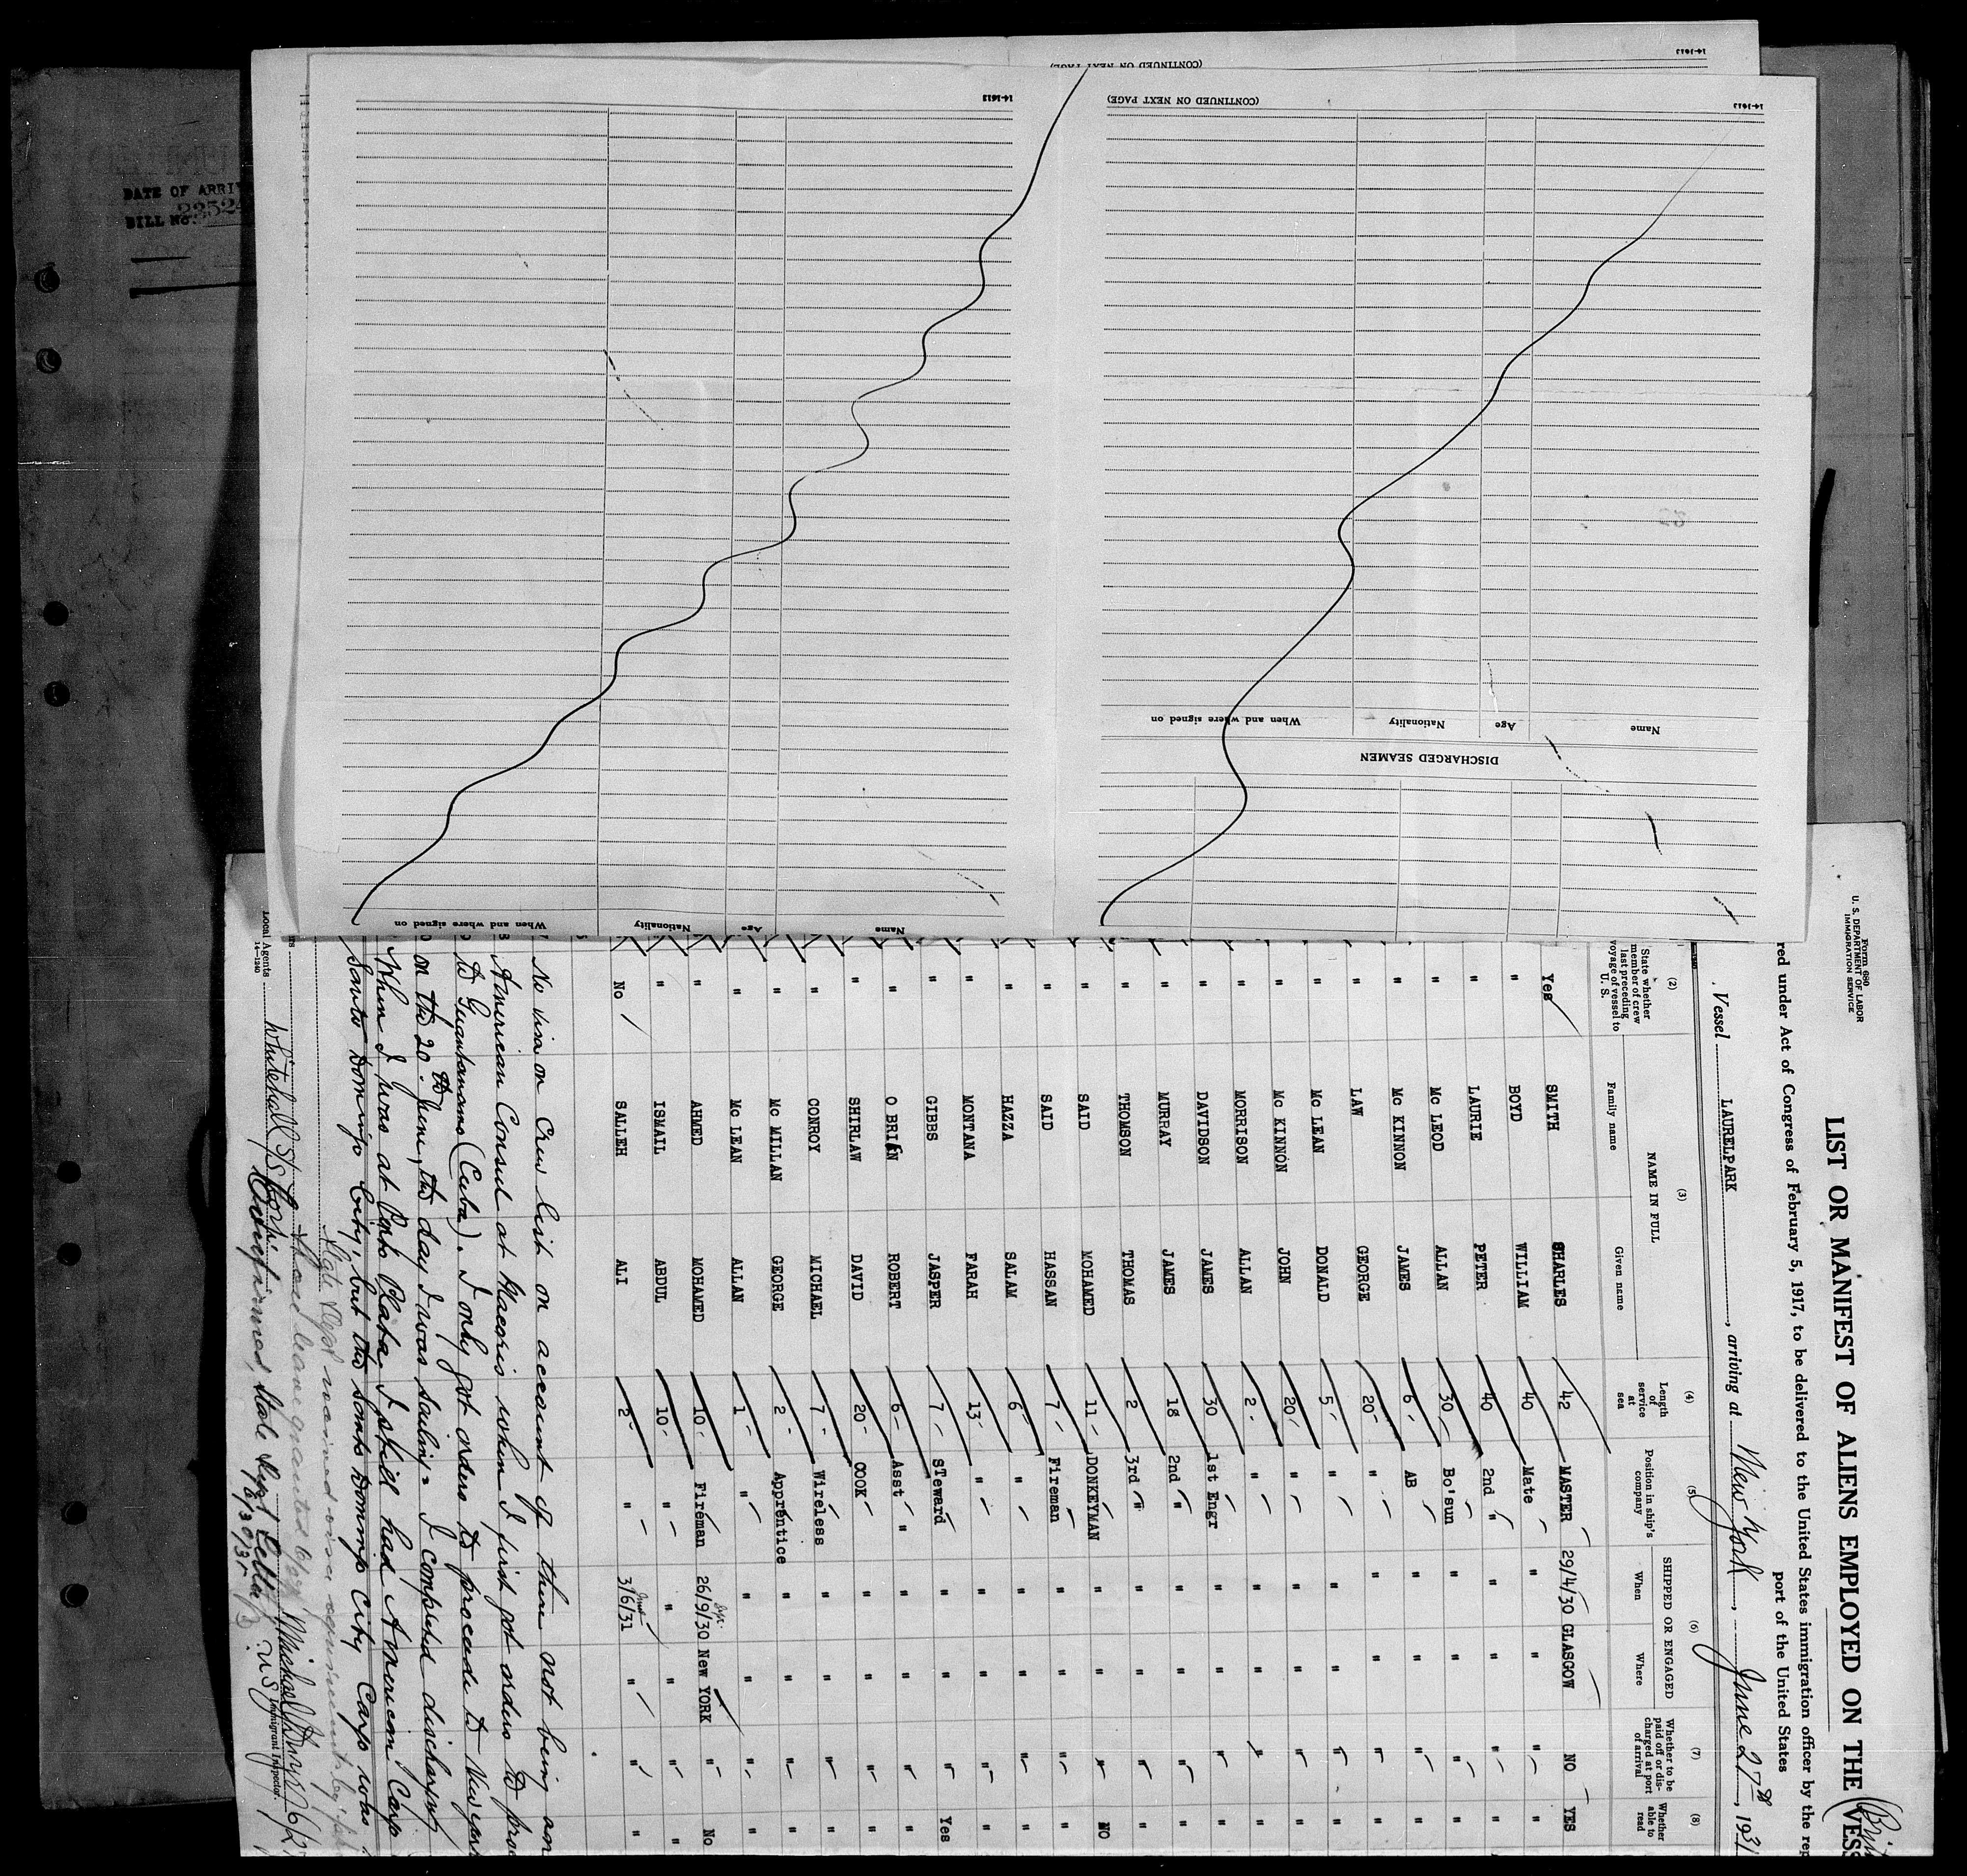 DATE OF ARRI
BILL No.
(CONTINUED ON NEXT PAGE)
14-1613
14-1613
(CONTINUED ON NEXT PAGE)
14-1613
Name Age Nationality When and where signed on
DISCHARGED SEAMEN
Name Age Nationality When and where signed on
Form 680
U. S. DEPARTMENT OF LABOR
IMMIGRATION SERVICE
LIST OR MANIFEST OF ALIENS EMPLOYED ON THE VESS
red under Act of Congress of February 5, 1917, to be delivered to the United States immigration officer by the rep
port of the United States
Vessel LAURELPARK, arriving at New York, June 27th, 1931
(2) (3) (4) (5) (6) (7) (8)
State whether member of crew last preceding voyage of vessel to U. S. NAME IN FULL Family name Given name Length of service at sea Position in ship's company SHIPPED OR ENGAGED When Where Whether to be paid off or discharged at port of arrival Whether able to read
Yes SMITH SHARLES 42 MASTER 29/4/30 GLASGOW NO YES
" BOYD WILLIAM 40 Mate " " " "
" LAURIE PETER 40 2nd " " " " "
" Mc LEOD ALLAN 30 Bo'sun " " " "
" Mc KINNON JAMES 6 AB " " " "
" LAW GEORGE 20 " " " " "
" Mc LEAN DONALD 5 " " " " "
" Mc KINNON JOHN 20 " " " " "
" MORRISON ALLAN 2 " " " " "
" DAVIDSON JAMES 30 1st Engr " " " "
" MURRAY JAMES 18 2nd " " " " "
" THOMSON THOMAS 2 3rd " " " " "
" SAID MOHAMED 11 DONKEYMAN " " " NO
" SAID HASSAN 7 Fireman " " " "
" HAZZA SALAM 6 " " " " "
" MONTANA FARAH 13 " " " " "
" GIBBS JASPER 7 STeward " " " Yes
" O BRIEN ROBERT 6 Asst " " " " "
" SHIRLAW DAVID 20 COOK " " " "
" CONROY MICHAEL 7 Wireless " " " "
" Mc MILLAN GEORGE 2 Apprentice " " " "
" Mc LEAN ALLAN 1 " " " " "
" AHMED MOHAMED 10 Fireman 26/9/30 New YORK " No
" ISMAIL ABDUL 10 " " " " "
No SALLEH ALI 2 " 3/6/31 " " "
No visa on Crew list on account of there not being an
American Consul at Macoris when I first got orders to pro
to Guantanamo (Cuba). I only got orders to proceed to New York
on the 20th June, the day I was sailing. I completed discharging
When I was at Porto Plata I still had American Cargo
Santo Domingo City, but the Santo Domingo City Cargo was
State Dept waived visa requirements
Shore leave granted
Whitehall St
Local Agents
14-1240
Confirmed, State Dept 6/30/31
U S Immigrant Inspector.